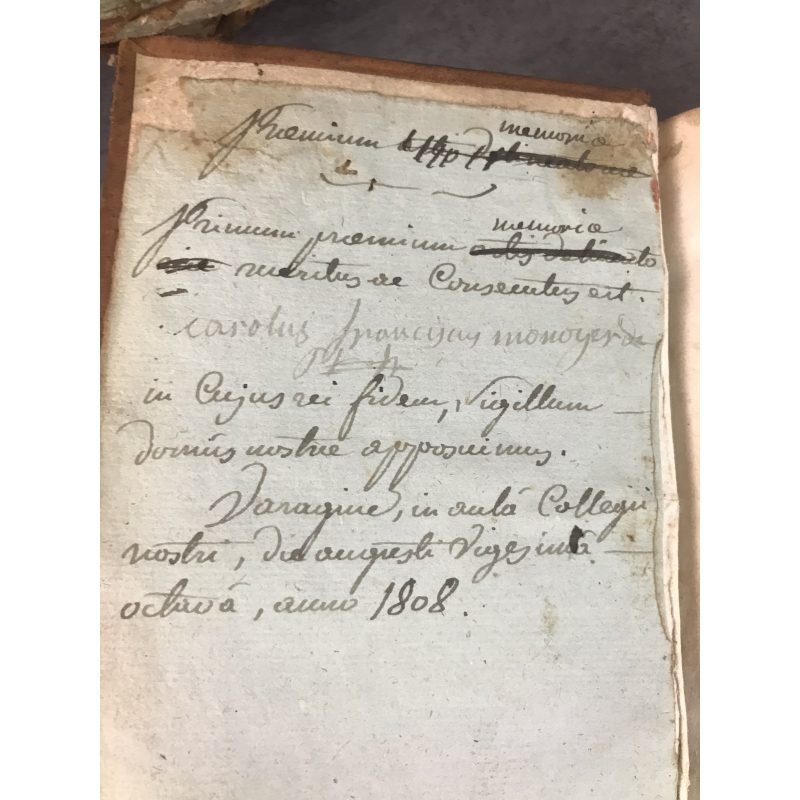 Præmium memoriæ
Primum præmium memoriæ
meritus ac Consecutus est.
carolus franciscus monoyer de
in Cujus rei fidem, Sigillum
domûs nostræ apposuimus.
in aulâ Collegii
nostri, die augusti Vigesimâ
octavâ, anno 1808.